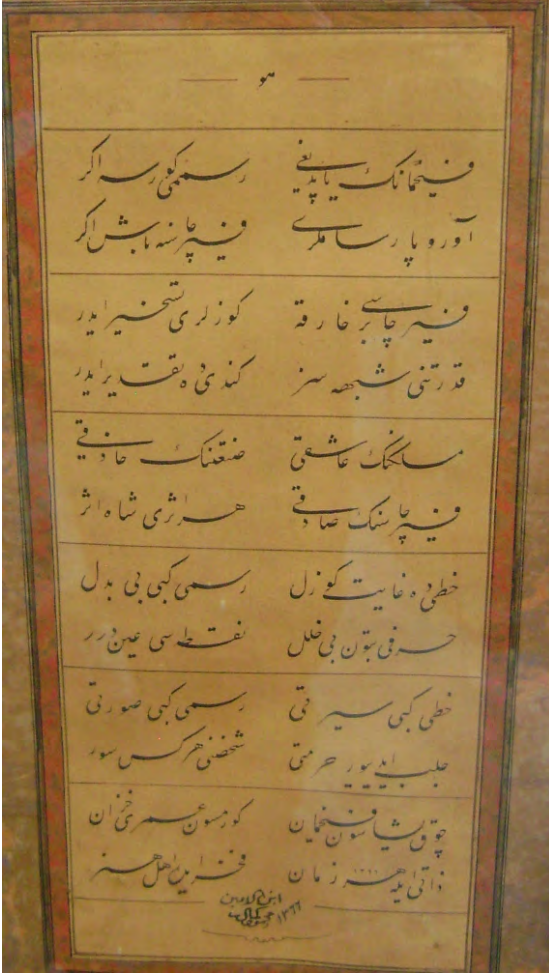 هو
فیحمانك یاپدیغی رسمی كورسه اكر
آوروپا رساملری فیرچاسنه باش اكر
فیرچاسی بر خارقه كوزلری تسخیر ایدر
قدرتنی شبهه سز كندی ده تقدیر ایدر
مسلكنك عاشقی صنعتنك حاذقی
فیرچاسنك صادقی هر اثری شاه اثر
خطی ده غایت كوزل رسمی كبی بی بدل
حرفی بتون بی خلل نقطه سی عین درر
خطی كبی سیرتی رسمی كبی صورتی
جلب ایدییور حرمتی شخصنی هركس سور
چوق یشاسون فیحمان كورمسون عمری خزان
ذاتی ایله هر زمان فخر ایدر اهل هنر
ابن الامین
محمود كمال ١٣٦٦